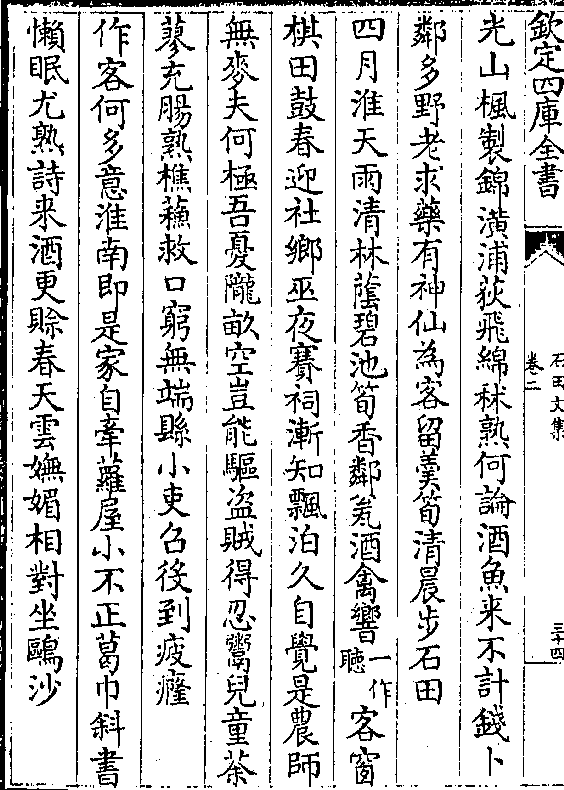 欽定四庫全書
石田文集
卷二
三十四
光山楓製錦潢浦荻飛綿秫熟何論酒魚来不計錢卜
鄰多野老求藥有神仙為客留羮筍清晨步石田
四月淮天雨清林蔭碧池筍香鄰瓮酒禽響一作聽客窗
棋田鼓春迎社鄉巫夜賽祠漸知飄泊久自覺是農師
無麥夫何極吾憂隴畝空豈能驅盗賊得忍鬻兒童荼
蓼充腸熟樵蘓救口窮無端縣小吏召役到疲癃
作客何多意淮南即是家自牽蘿屋小不正葛巾斜書
懶眠尤熟詩来酒更賒春天雲嫵媚相對坐鷗沙